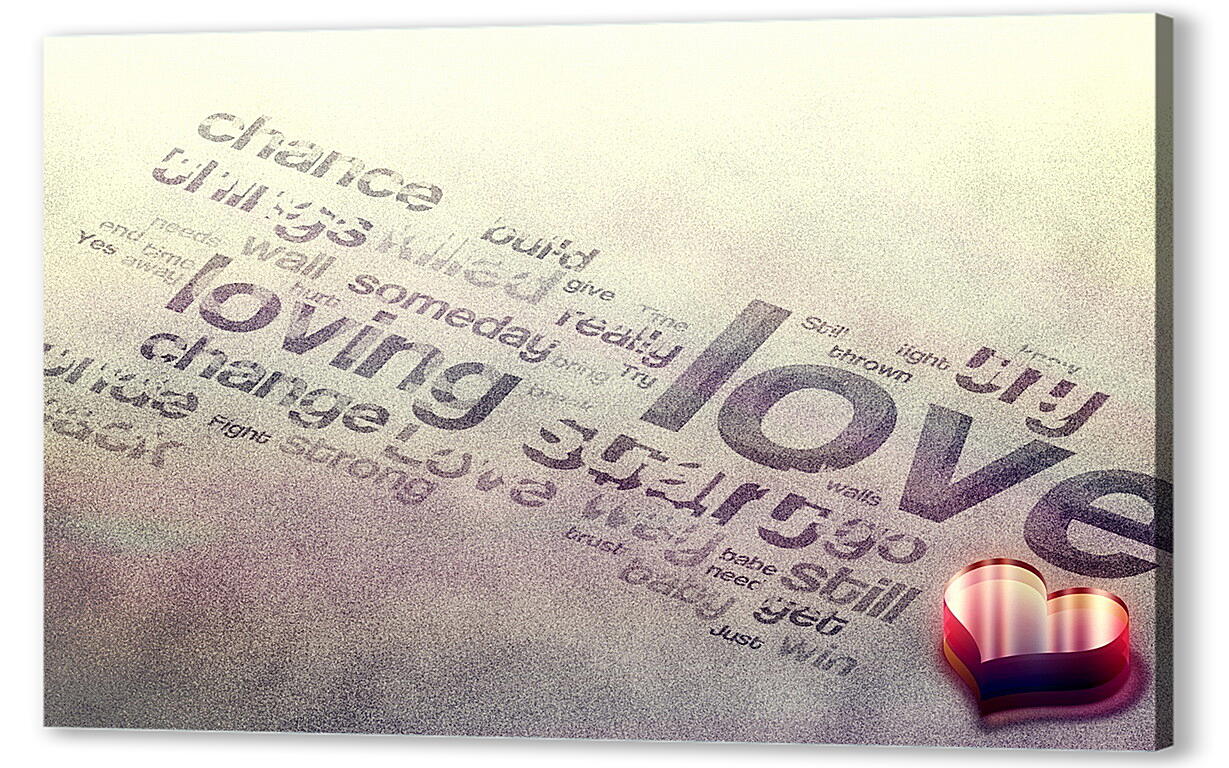 chance
things
build
needs
wall
killed
give
Time
end time
Yes away
loving
hurt
someday
really
love
Still
light
try
thrown
change
bring Try
inside
back
Fight
Strong
Love
start
walls
go
way
trust
babe
need
still
baby
get
Just
win